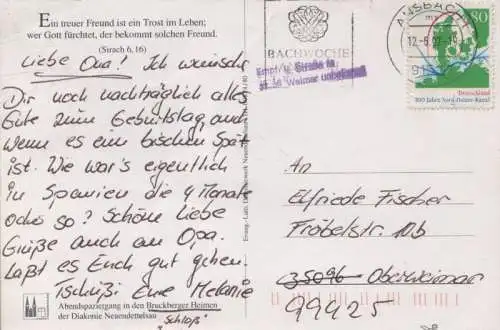 Ein treuer Freund ist ein Trost im Leben;
wer Gott fürchtet, der bekommt solchen Freund.
(Sirach 6, 16)
Liebe Oma! Ich wünsche
Dir noch nachträglich alles
Gute zum Geburtstag, auch
wenn es ein bischen Spät
ist. Wie war's eigentlich
in Spanien die 4 Monate
oder so? Schöne Liebe
Grüße auch an Opa.
Laßt es Euch gut gehen
Tschüß! Eure Melanie
Abendspaziergang in den Bruckberger Heimen
der Diakonie Neuendettelsau
"Schloß"
BACHWOCHE
ANSBACH
80
Deutschland
Elfriede Fischer
Fröbelstr. 10b
35096 Oberweimar
99425